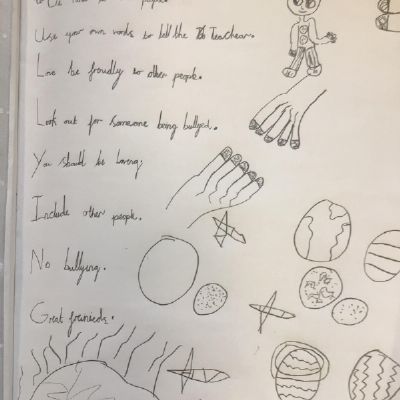 people.
Use your own words to tell the Teachear.
Love be froudly to other people.
Look out for someone being bullyed.
You should be loving;
Include other people.
No bullying.
Great frineeds.